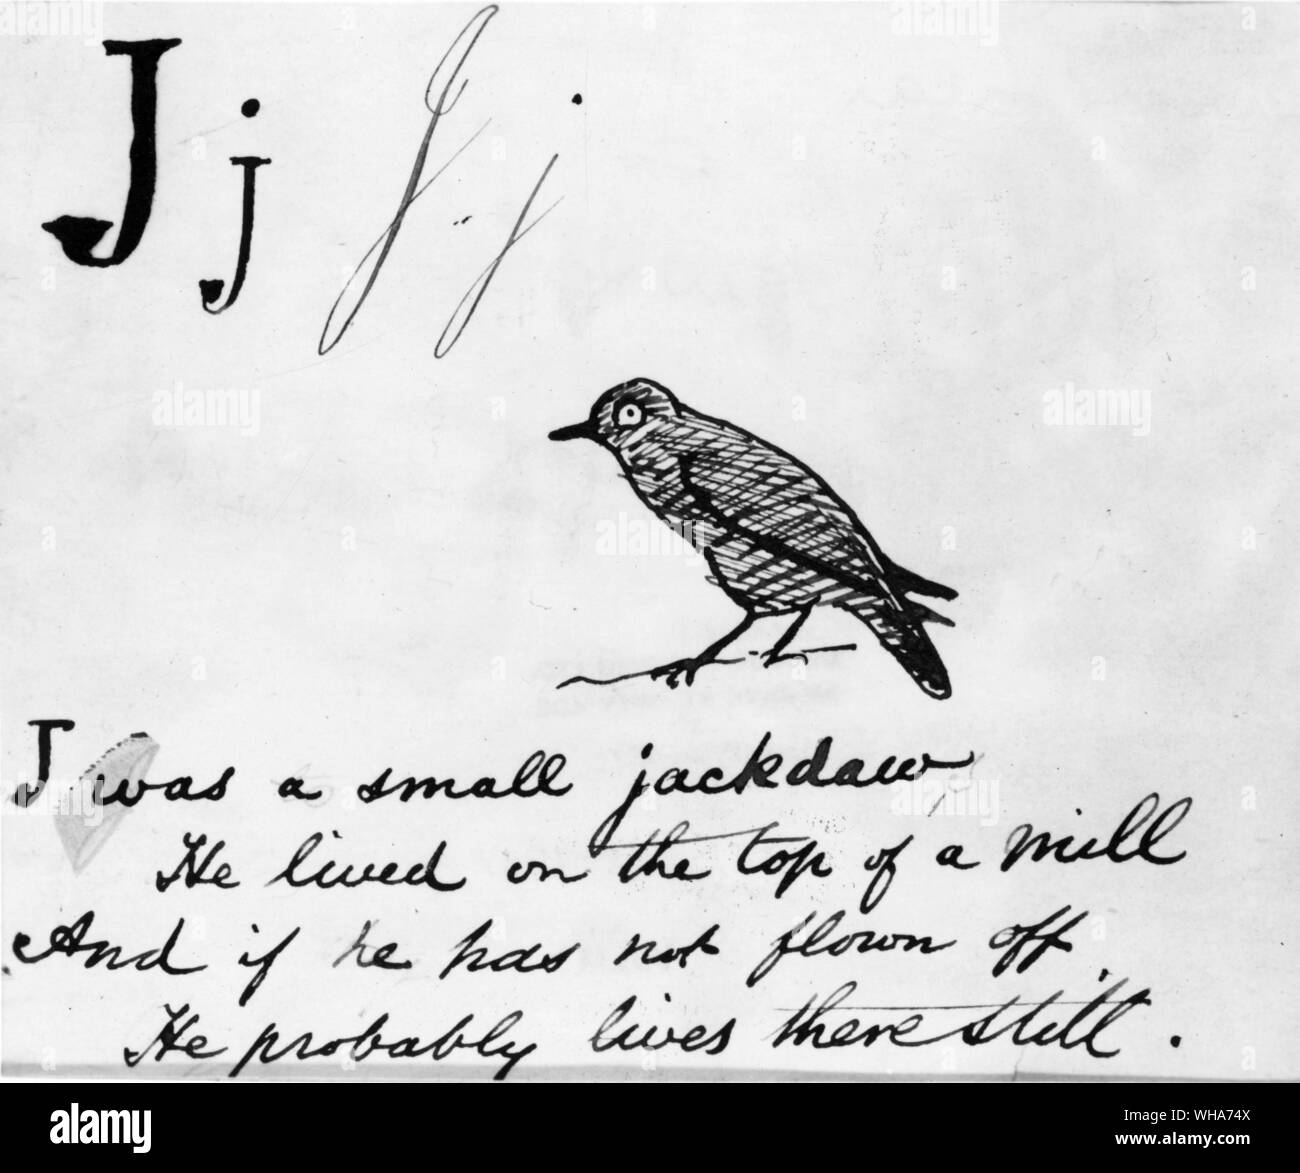 J j J. j
J was a small jackdaw
He lived on the top of a mill
And if he has not flown off,
He probably lives there still.
alamy
alamy
Image ID: WHA74X
www.alamy.com